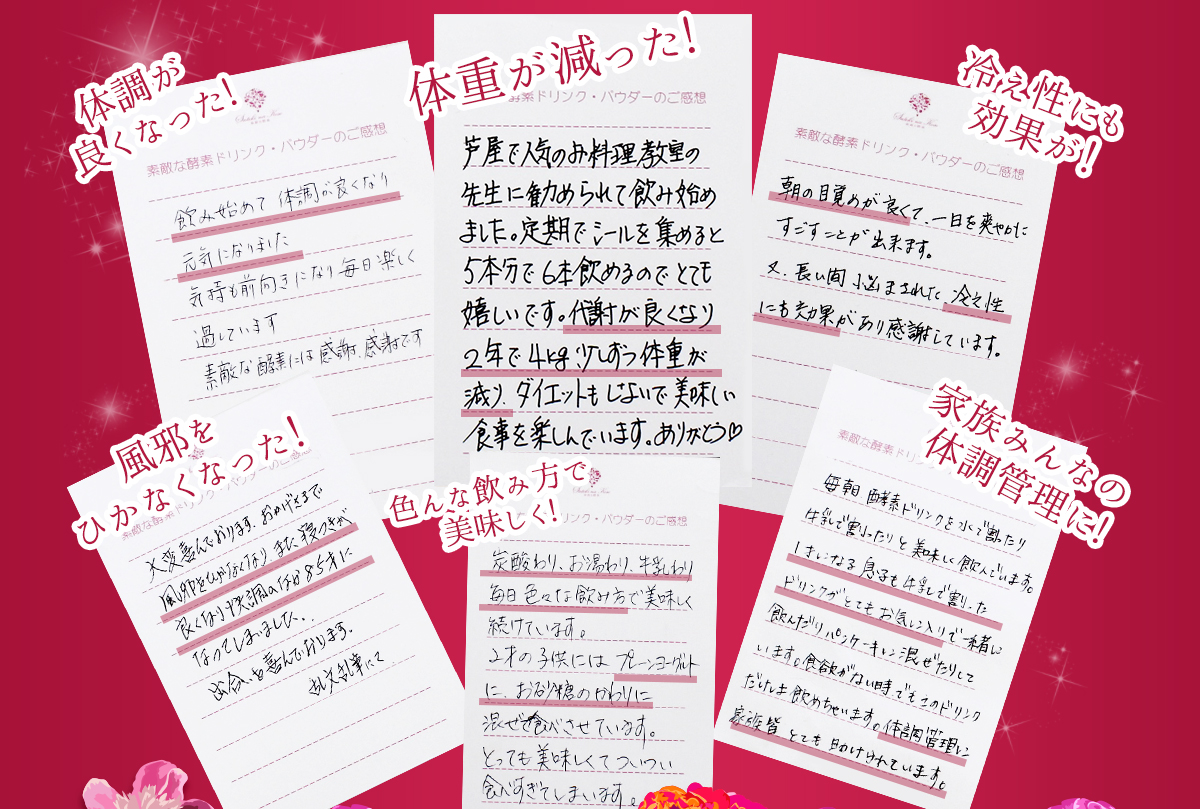 体調が
良くなった!
素敵な酵素ドリンク・パウダーのご感想
飲み始めて 体調が良くなり
元気になりました
気持も前向きになり毎日楽しく
過しています
素敵な酵素には感謝、感謝です
体重が減った!
酵素ドリンク・パウダーのご感想
芦屋で人気のお料理教室の
先生に勧められて飲み始め
ました。定期でシールを集めると
5本分で6本飲めるのでとても
嬉しいです。代謝が良くなり
2年で4kg少しずつ体重が
減り、ダイエットもしないで美味しい
食事を楽しんでいます。ありがとう♡
冷え性にも
効果が!
素敵な酵素ドリンク・パウダーのご感想
朝の目覚めが良くて、一日を爽やかに
すごすことが出来ます。
又、長い間 悩まされた 冷え性
にも効果があり感謝しています。
風邪を
ひかなくなった!
素敵な酵素ドリンク・パウダーのご感想
大変喜んでおります。おかげさまで
風邪をひかなくなり また、寝つきが
良くなり快調のまま85才に
なってしまいました。
出会いを喜んでおります。
乱文乱筆にて
色んな飲み方で
美味しく!
ドリンク・パウダーのご感想
炭酸わり、お湯わり、牛乳わり
毎日色々な飲み方で美味しく
続けています。
2才の子供には プレーンヨーグルト
に、お砂糖のかわりに
混ぜて食べさせています。
とっても美味しくてついつい
食べすぎてしまいます。
家族みんなの
体調管理に!
素敵な酵素ドリンク
毎朝 酵素ドリンクを水で割ったり
牛乳で割ったりと美味しく飲んでいます。
小さい息子も牛乳で割った
ドリンクがとてもお気に入りで一緒に
飲んだりパンケーキに混ぜたりして
います。食欲がない時でもこのドリンク
だけは飲めちゃいます。体調管理に
家族皆 とても助けられています。